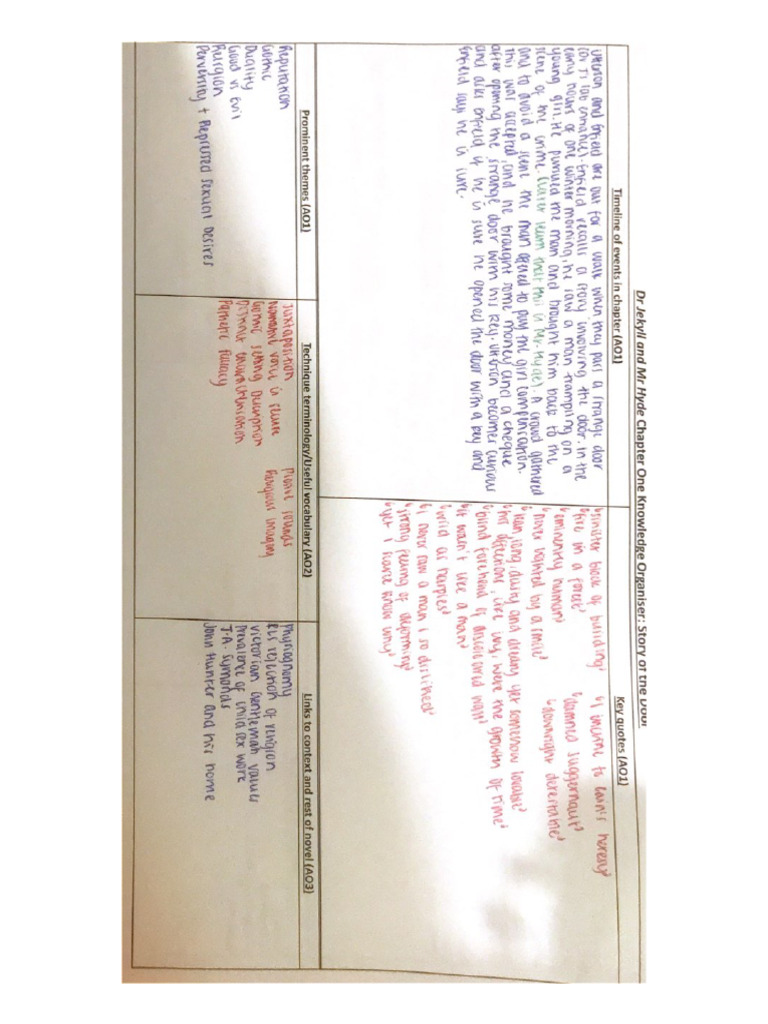 Dr Jekyll and Mr Hyde Chapter One Knowledge Organiser: Story of the Door
Timeline of events in chapter (AO1)
Utterson and Enfield are out for a walk when they pass a strange door
(Dr J's lab entrance). Enfield recalls a story involving the door. In the
early hours of one winter morning, he saw a man trampling on a
young girl. He pursued the man and brought him back to the
scene of the crime. (Later learn that this is Mr. Hyde). A crowd gathered
and to avoid a scene the man offered to pay the girl compensation.
This was accepted, and he brought some money and a cheque
after opening the strange door with his key. Utterson becomes curious
and asks Enfield if he is sure he opened the door with a key and
Enfield says he is sure.
Key quotes (AO1)
"sinister block of building"
"fire in a forest"
"eminently human"
"never lighted by a smile"
"lean, long, dusty and dreary yet somehow lovable"
"his affections, like ivy, were the growth of time"
"blind forehead of discoloured wall"
"it wasn't like a man"
"wild as harpies"
"I never saw a man I so disliked"
"strong feeling of deformity"
"yet I scarce know why"
"I incline to Cain's heresy"
"damned Juggernaut"
"downright detestable"
Prominent themes (AO1)
Reputation
Gothic
Duality
Good vs Evil
Religion
Perversity + Repressed Sexual Desires
Technique terminology/Useful vocabulary (AO2)
Juxtaposition
Narrative voice is
Gothic setting description
Distinct characterisation
Pathetic fallacy
Plosive sounds
Religious imagery
Links to context and rest of novel (AO3)
Physiognomy
RLS rejection of religion
Victorian Gentleman values
Prevalence of child sex work
J.A. Symonds
John Hunter and his home